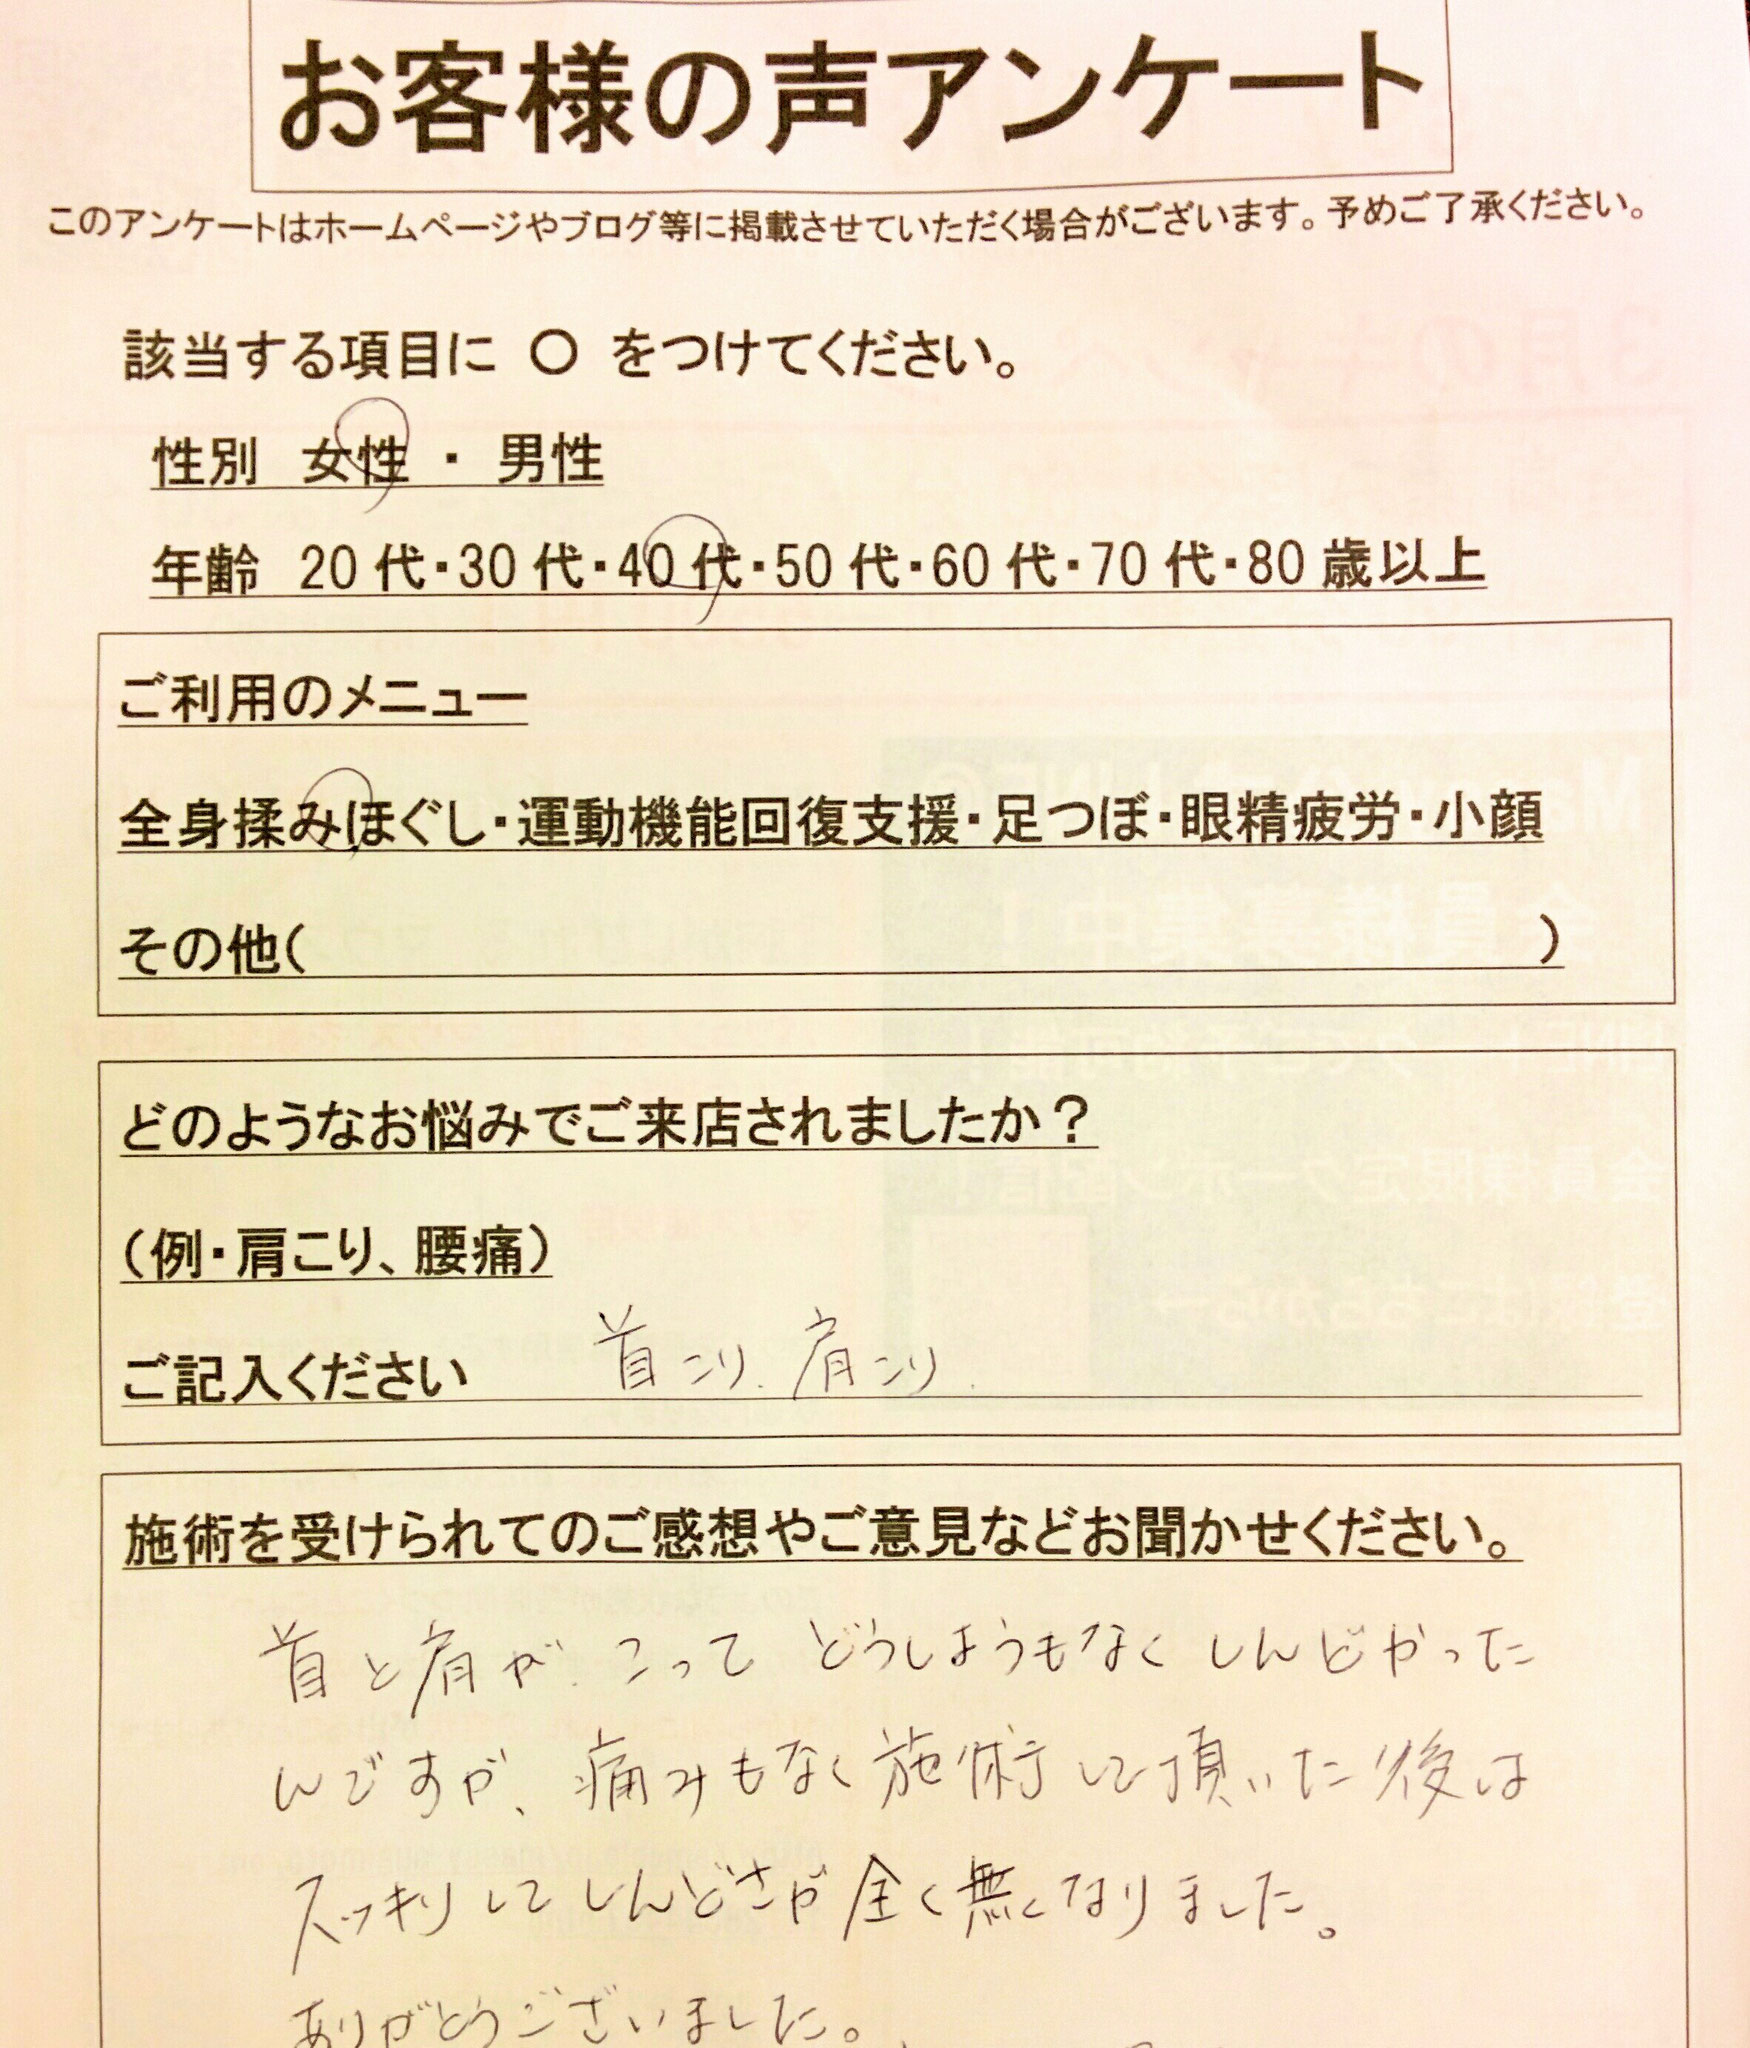 お客様の声アンケート
このアンケートはホームページやブログ等に掲載させていただく場合がございます。予めご了承ください。
該当する項目に 〇 をつけてください。
性別 女性 ・ 男性
年齢 20代・30代・40代・50代・60代・70代・80歳以上
ご利用のメニュー
全身揉みほぐし・運動機能回復支援・足つぼ・眼精疲労・小顔
その他( )
どのようなお悩みでご来店されましたか?
(例・肩こり、腰痛)
ご記入ください 首こり. 肩こり.
施術を受けられてのご感想やご意見などお聞かせください。
首と肩が こって どうしようもなく しんどかった
んですが、痛みもなく施術して頂いた後は
スッキリしてしんどさが全く無くなりました。
ありがとうございました。